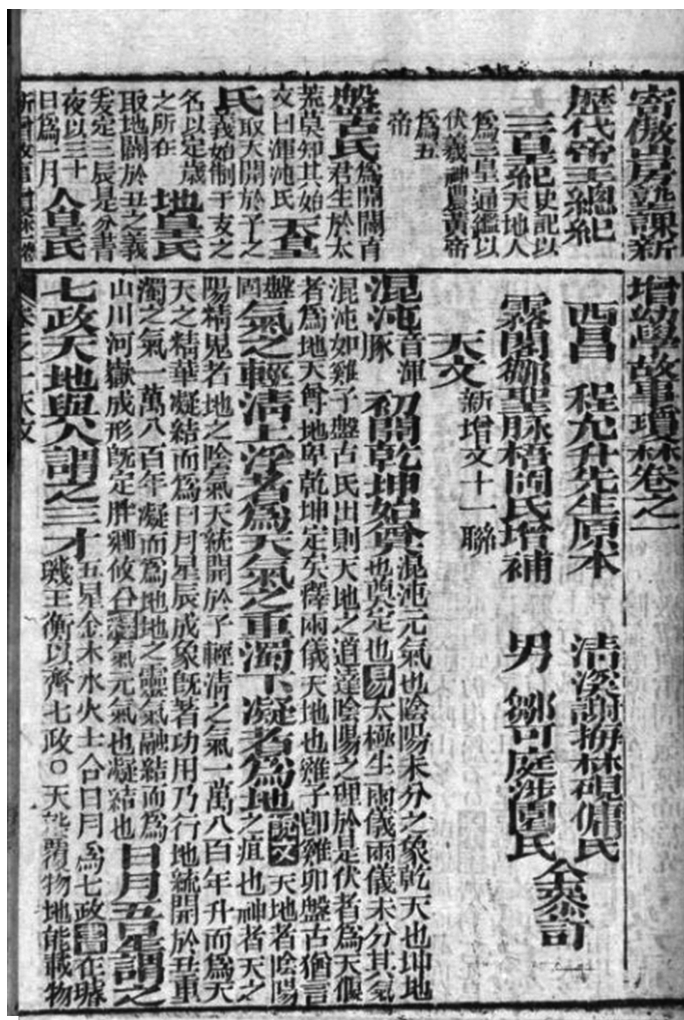 寄傲山房塾課新增幼學故事瓊林卷之一
歷代帝王總紀
三皇紀史記以天地人
為三皇通鑑以
伏羲神農黃帝
為五
帝
盤古氏為開闢首
君生於太
荒莫知其始
又曰渾沌氏天皇
氏取天開於子之
義始制干支之
名以定歲
之所在地皇氏
取地闢於丑之義
爰定三辰是分晝
夜以三十
日為一月人皇氏
西昌 程允升先生原本 清溪謝梅林硯傭氏
霧閣鄒聖脉梧岡氏增補 男 鄒可庭涉園氏 仝參訂
天文 新增文十一聯
混沌音渾豚初開乾坤始奠混沌元氣也陰陽未分之象乾天也坤地
也奠定也易太極生兩儀兩儀未分其氣
混沌如雞子盤古氏出則天地之道達陰陽之理於是伏者為天偃
者為地天尊地卑乾坤定矣釋兩儀天地也雞子卽雞卵盤古猶言
盤固氣之輕清上浮者為天氣之重濁下凝者為地說文天地者陰陽
之疽也神者天之
陽精見者地之陰氣天統開於子輕清之氣一萬八百年升而為天
天之精華凝結而為日月星辰成象既著功用乃行地統開於丑重
濁之氣一萬八百年凝而為地地之靈氣融結而為
山川河嶽成形既定胚渾攸分釋氣元氣也凝結也日月五星謂之
七政天地與人謂之三才五星金木水火土合日月為七政書在璿
璣玉衡以齊七政○天能覆物地能載物